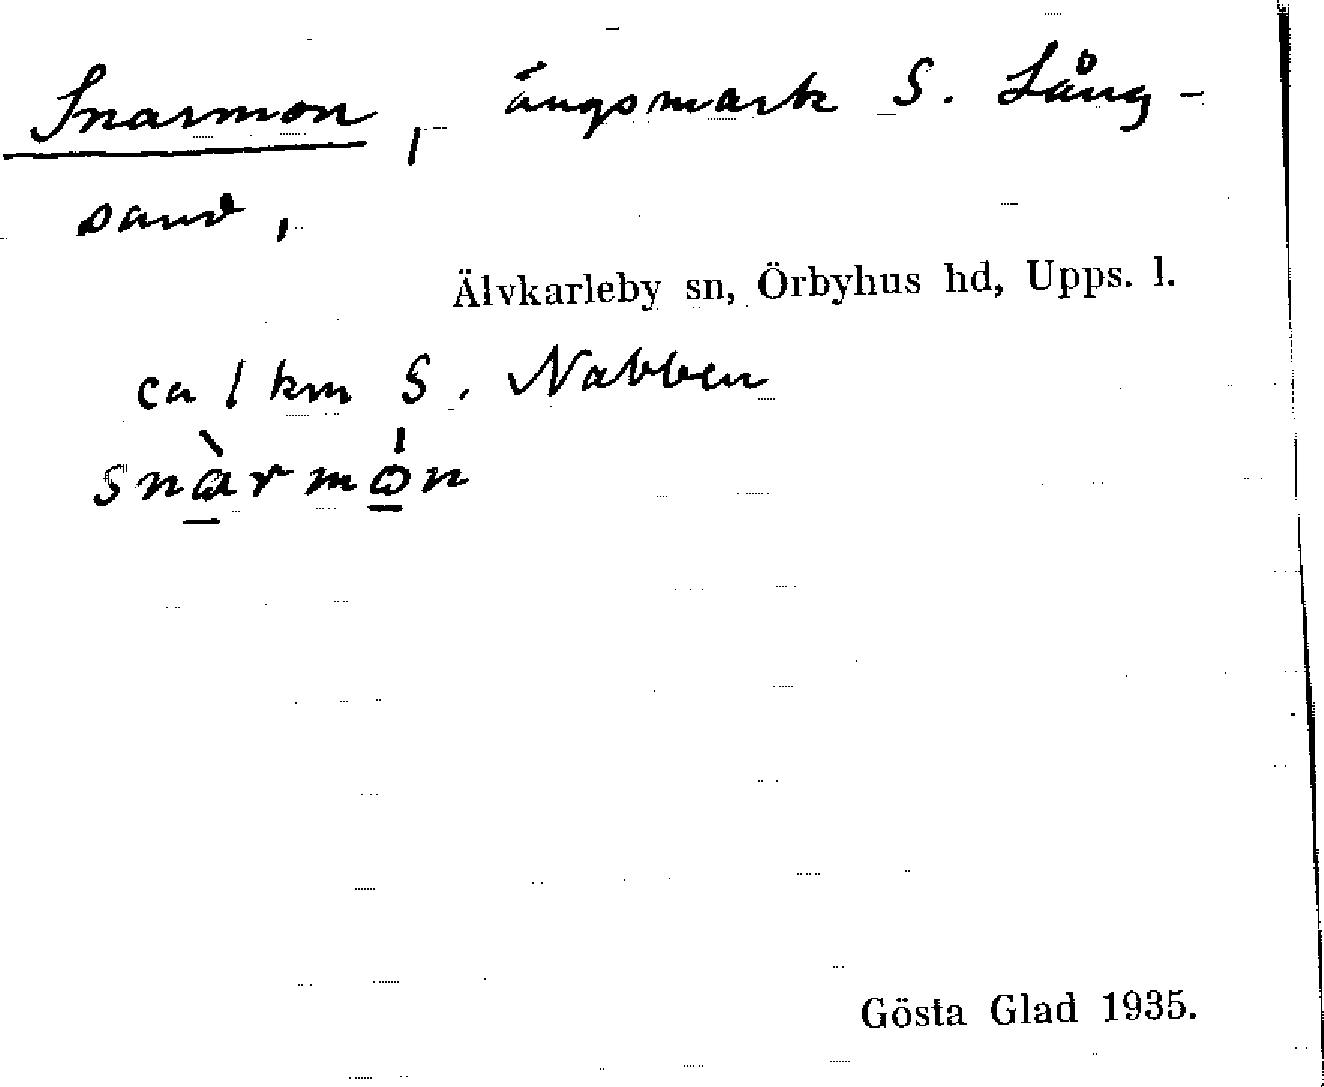 Snarmon, ängsmark S. Lång-
sand,
Älvkarleby sn, Örbyhus hd, Upps. l.
ca 1 km S. Nabben
snàrmón
Gösta Glad 1935.